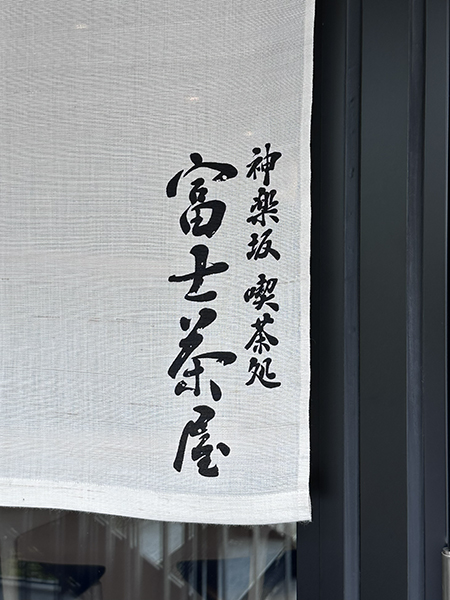 神楽坂 喫茶処
富士茶屋